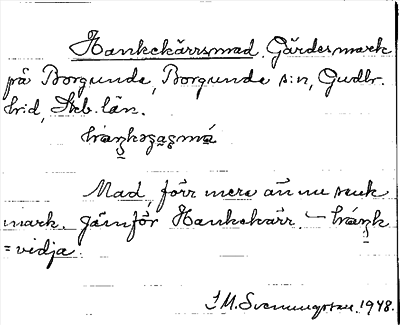 Hankekärrsmad. Gärdesmark
på Borgunda, Borgunda s:n, Gudhr.
hrd, Skb. län.
Mad, förr mera än nu sank
mark. Jämför Hankekärr. –
= vidja.
J M. Svenungsson. 1948.